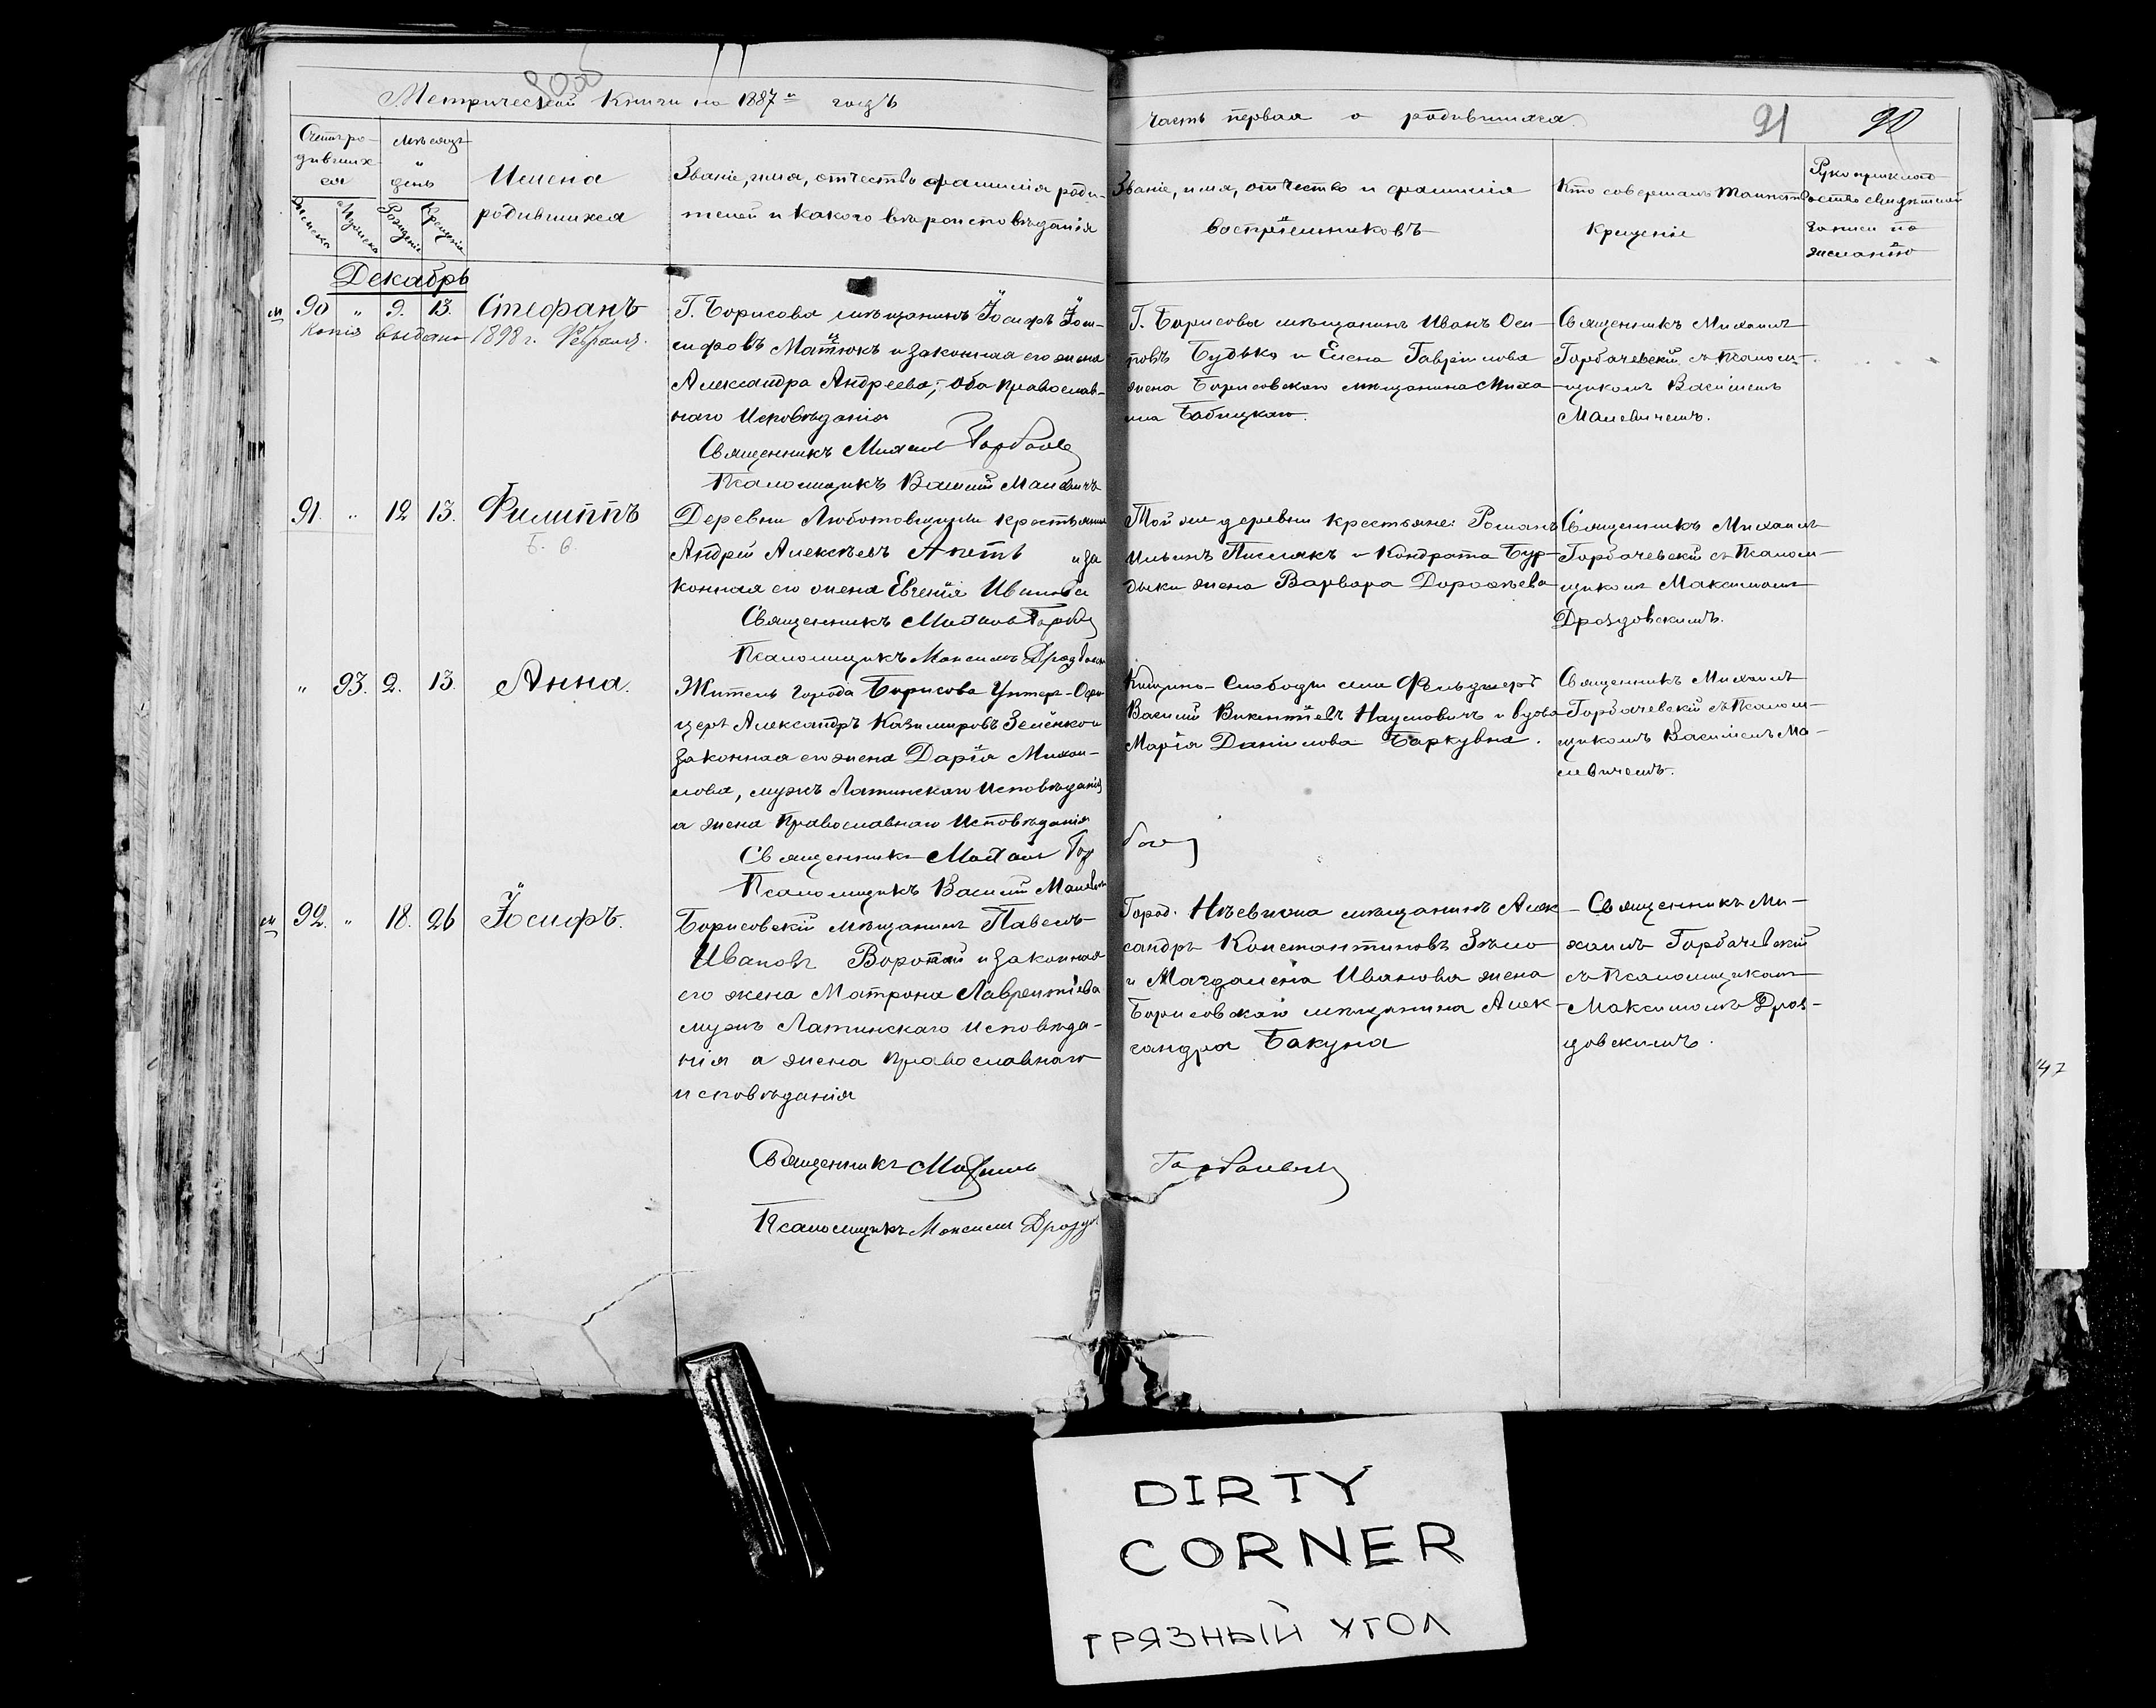 Метрической книги на 1887й годъ
часть первая о родившихся
91
90
Счетъ ро-
дивших
ся
Мѣсяцъ
и
день
Рожденія
Крещенія
Имена
родившихся
Званіе, имя, отчество фамилія роди-
телей и какого вѣроисповѣданія
Званіе, имя, отчество и фамилія
воспріемниковъ
Кто совершалъ таинство
крещенія
Рукоприклад-
ство свидѣтелей
записи по
желанію
Декабрь
м 90 " 9. 13. Стефанъ
Копія выдана 1898 г. Февраля.
Г. Борисова мѣщанинъ Іосифъ Іо-
сифовъ Матюкъ и законная его жена
Александра Андреева, оба православ-
наго исповѣданія
Священникъ Михаилъ
Псаломщикъ Василій Малевичъ
Г. Борисова мѣщанинъ Иванъ Оси-
повъ Будько и Елена Гавріилова
жена Борисовскаго мѣщанина Миха-
ила Бабицкаго.
Священникъ Михаилъ
Горбачевскій съ псалом-
щикомъ Василіемъ
Малевичемъ.
91. " 12 13. Филиппъ
Б. В.
Деревни крестьянинъ
Андрей Алексѣевъ и за
конная его жена Евгенія
Священникъ Михаилъ
Псаломщикъ Максимъ
Той же деревни крестьяне: Романъ
Ильинъ и Кондрата Бур-
дыки жена Варвара Дороѳеева
Священникъ Михаилъ
Горбачевскій съ псалом-
щикомъ Максимомъ
Дроздовскимъ.
" 93. 2. 13. Анна.
Житель города Борисова Унтеръ-Офи-
церъ Александръ Казимировъ Зеленко и
законная его жена Дарія Михаи-
лова, мужъ Латинскаго исповѣданія
а жена Православнаго исповѣданія
Священникъ Михаилъ Гор
Псаломщикъ Василій Малевичъ
Слободы Фельдшеръ
Василій Викентіевъ Наумовичъ и вдова
Марія Данилова Баркувна.
Священникъ Михаилъ
Горбачевскій съ псалом-
щикомъ Василіемъ Ма-
левичемъ.
м 92. " 18. 26 Іосифъ.
Борисовскій мѣщанинъ Павелъ
Ивановъ и законная
его жена Матрона Лаврентіева
мужъ Латинскаго исповѣда-
нія а жена православнаго
исповѣданія
Священникъ Михаилъ
Псаломщикъ Максимъ
Город. мѣщанинъ Алек-
сандръ Константиновъ
и Магдалена Иванова жена
Борисовскаго мѣщанина Алек-
сандра Бакуна
Священникъ Ми-
хаилъ Горбачевскій
съ псаломщикомъ
Максимомъ Дроз-
довскимъ.
47
DIRTY
CORNER
ГРЯЗНЫЙ УГОЛ